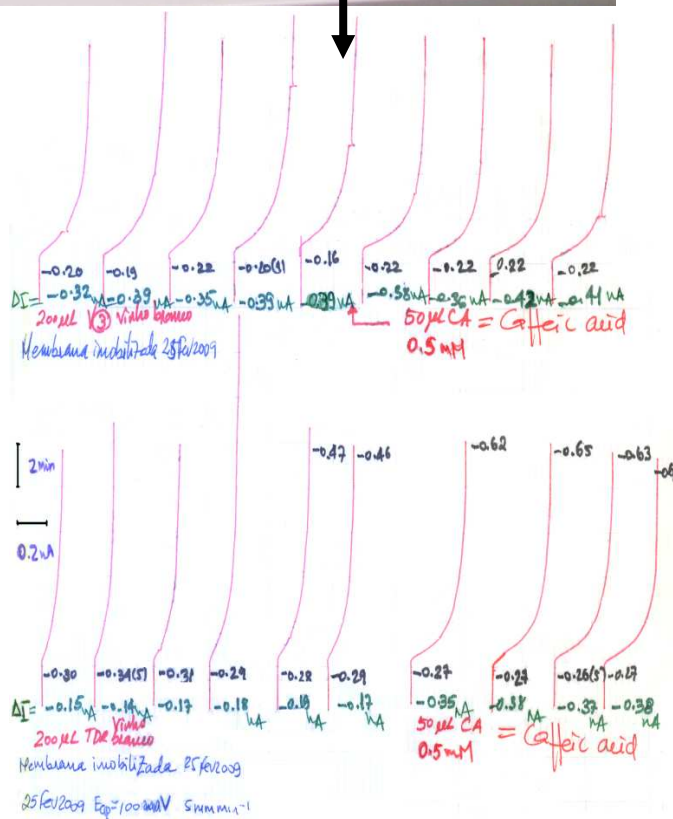 -0.20 -0.19 -0.22 -0.20(9) -0.16 -0.22 -0.22 -0.22 -0.22
ΔI= -0.32 nA -0.39 nA -0.35 nA -0.39 nA -0.39 nA -0.38 nA -0.36 nA -0.42 nA -0.41 nA
200µL V③ Vinho branco 50µL CA = Caffeic acid
Membrana imobilizada 25fev2009 0.5mM
-0.47 -0.46 -0.62 -0.65 -0.63
2min
0.2nA
-0.30 -0.34(5) -0.31 -0.29 -0.28 -0.29 -0.27 -0.27 -0.26(5) -0.27
ΔI= -0.15 nA -0.14 nA -0.17 -0.18 nA -0.19 nA -0.17 nA -0.35 nA -0.38 nA -0.37 nA -0.38 nA
200µL TDR Vinho branco 50µL CA = Caffeic acid
0.5mM
Membrana imobilizada 25fev2009
25Fev2009 Eap=100 mV 5mm min-1